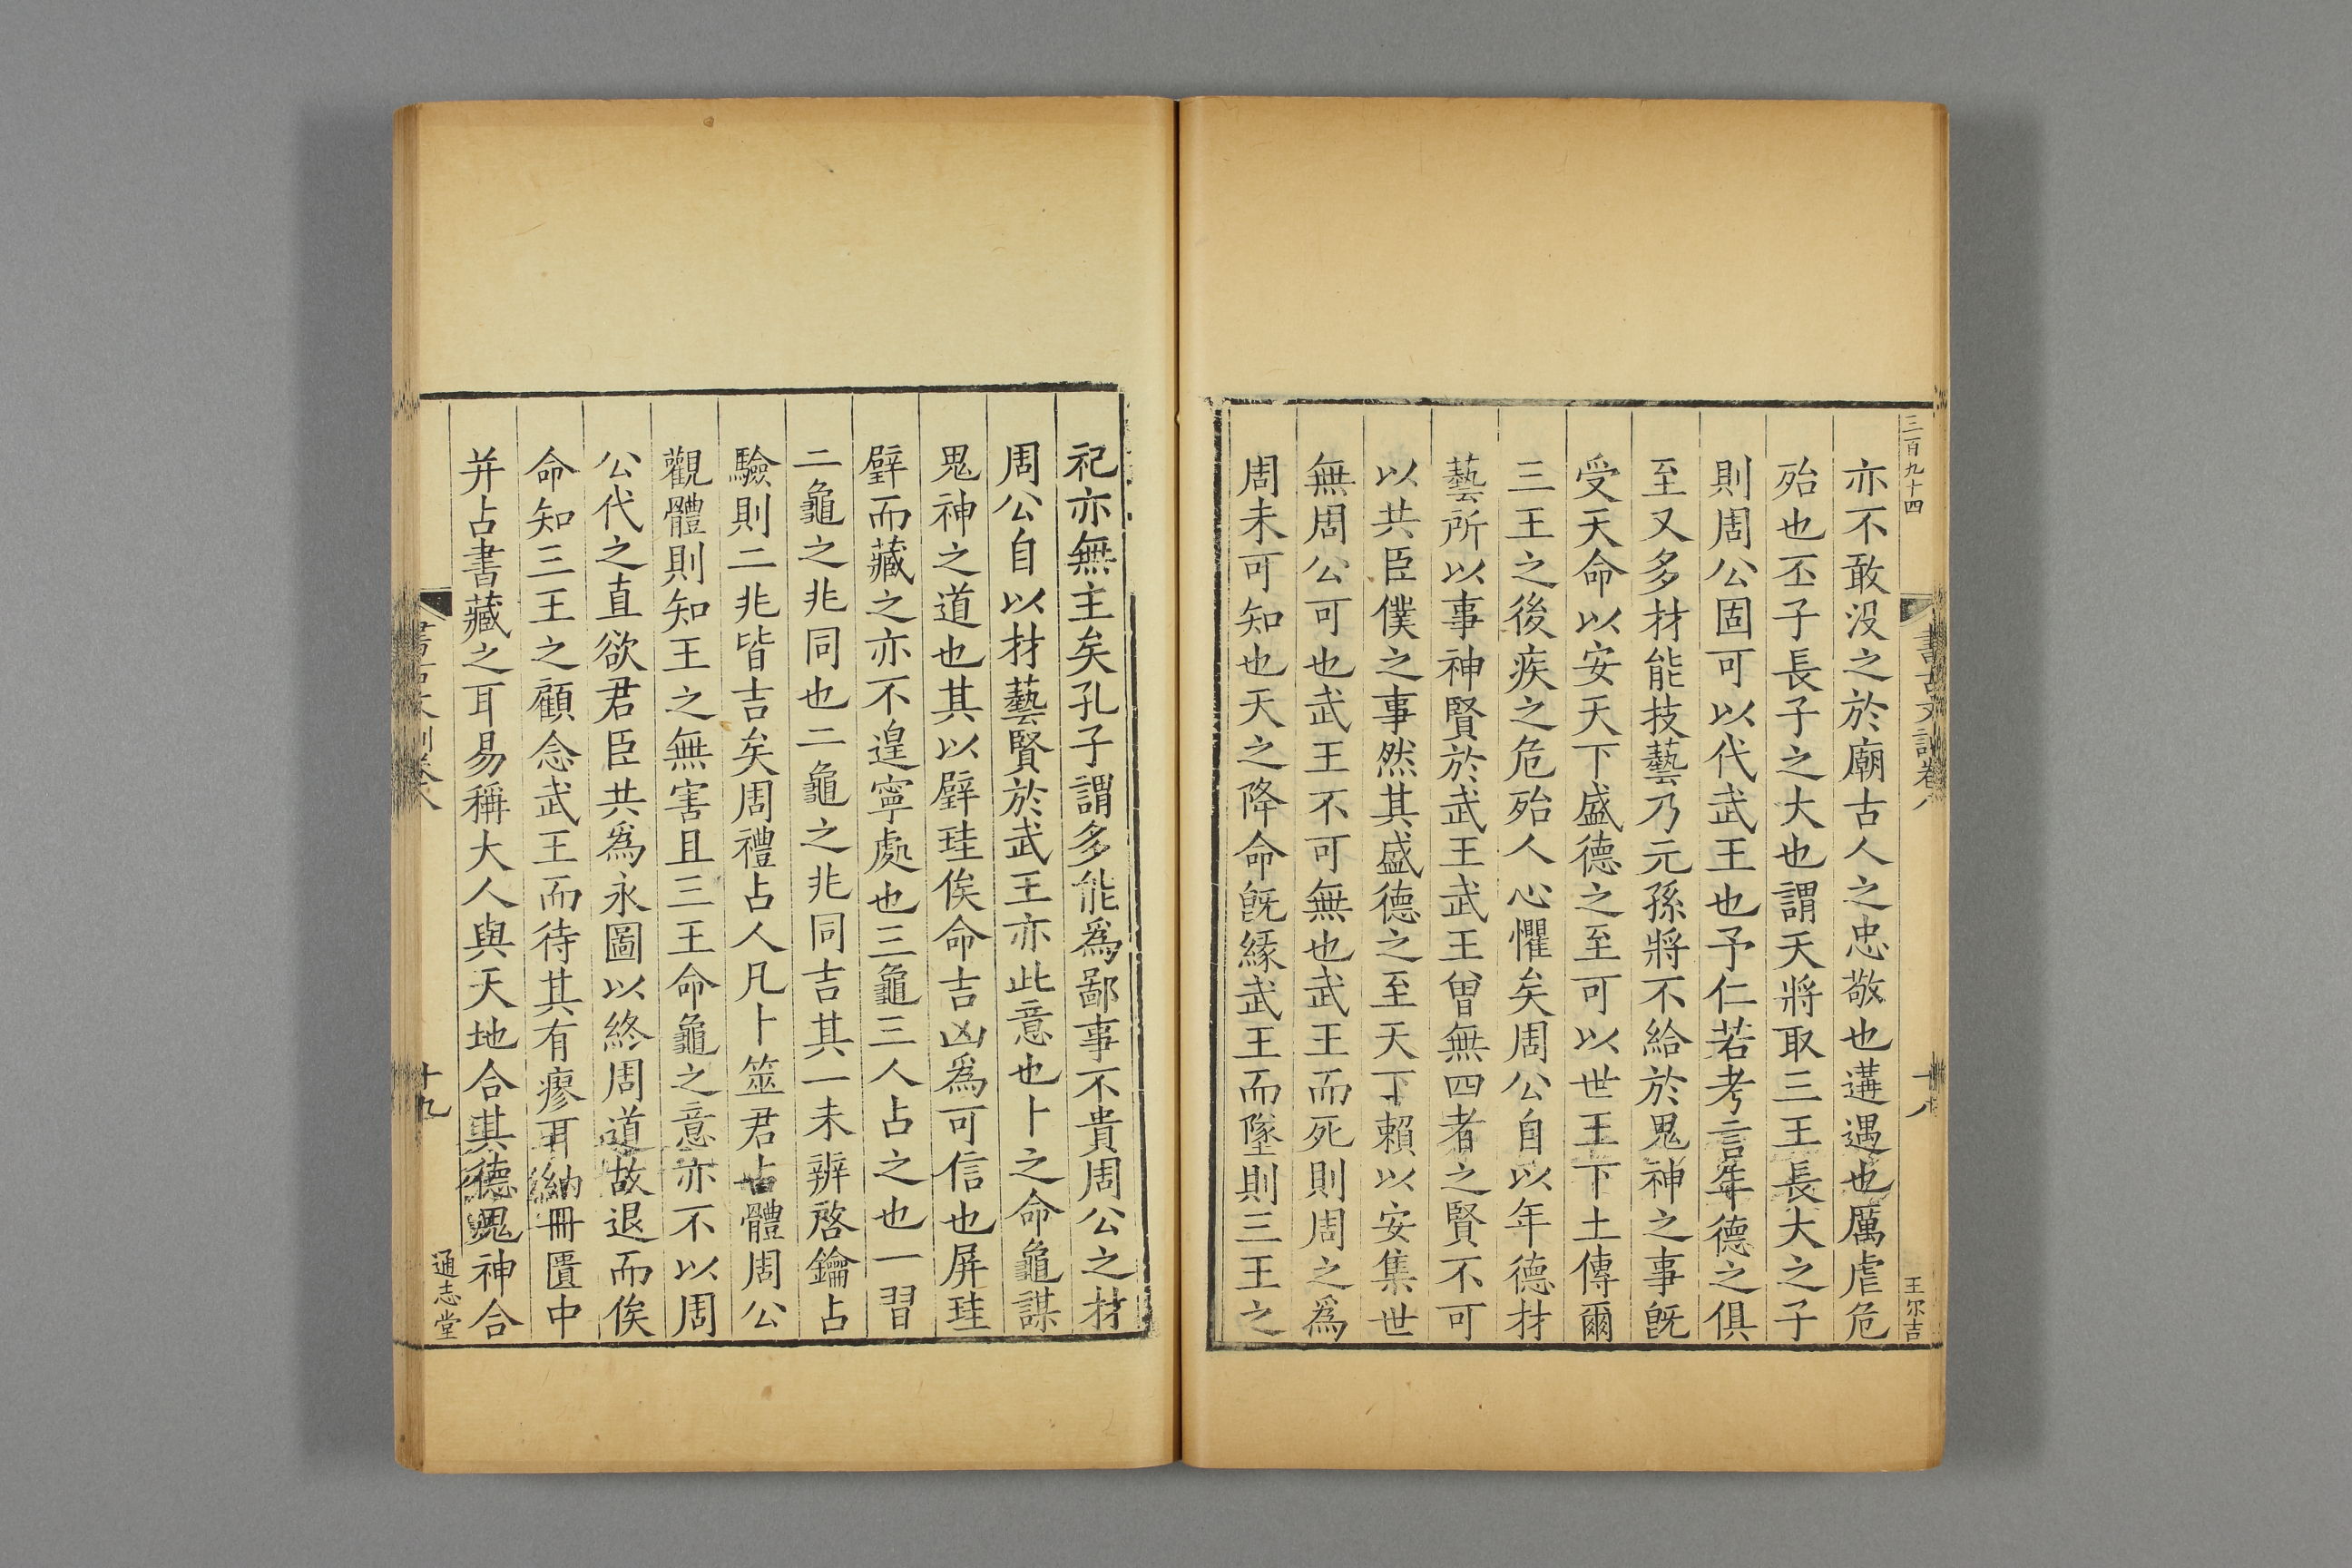 三百九十四
書古文訓卷八
十八
王尔吉
亦不敢没之於廟古人之忠敬也遘遇也厲虐危
殆也丕子長子之大也謂天將取三王長大之子
則周公固可以代武王也予仁若考言年德之俱
至又多材能技藝乃元孫將不給於鬼神之事旣
受天命以安天下盛德之至可以世王下土傳爾
三王之後疾之危殆人心懼矣周公自以年德材
藝所以事神賢於武王武王曾無四者之賢不可
以共臣僕之事然其盛德之至天下賴以安集世
無周公可也武王不可無也武王而死則周之爲
周未可知也天之降命旣緣武王而墜則三王之
祀亦無主矣孔子謂多能爲鄙事不貴周公之材
周公自以材藝賢於武王亦此意也卜之命龜謀
鬼神之道也其以璧珪俟命吉凶爲可信也屏珪
璧而藏之亦不遑寧處也三龜三人占之也一習
二龜之兆同也二龜之兆同吉其一未辨啓鑰占
驗則二兆皆吉矣周禮占人凡卜筮君占體周公
觀體則知王之無害且三王命龜之意亦不以周
公代之直欲君臣共爲永圖以終周道故退而俟
命知三王之顧念武王而待其有瘳耳納冊匱中
并占書藏之耳易稱大人與天地合其德鬼神合
十九
通志堂